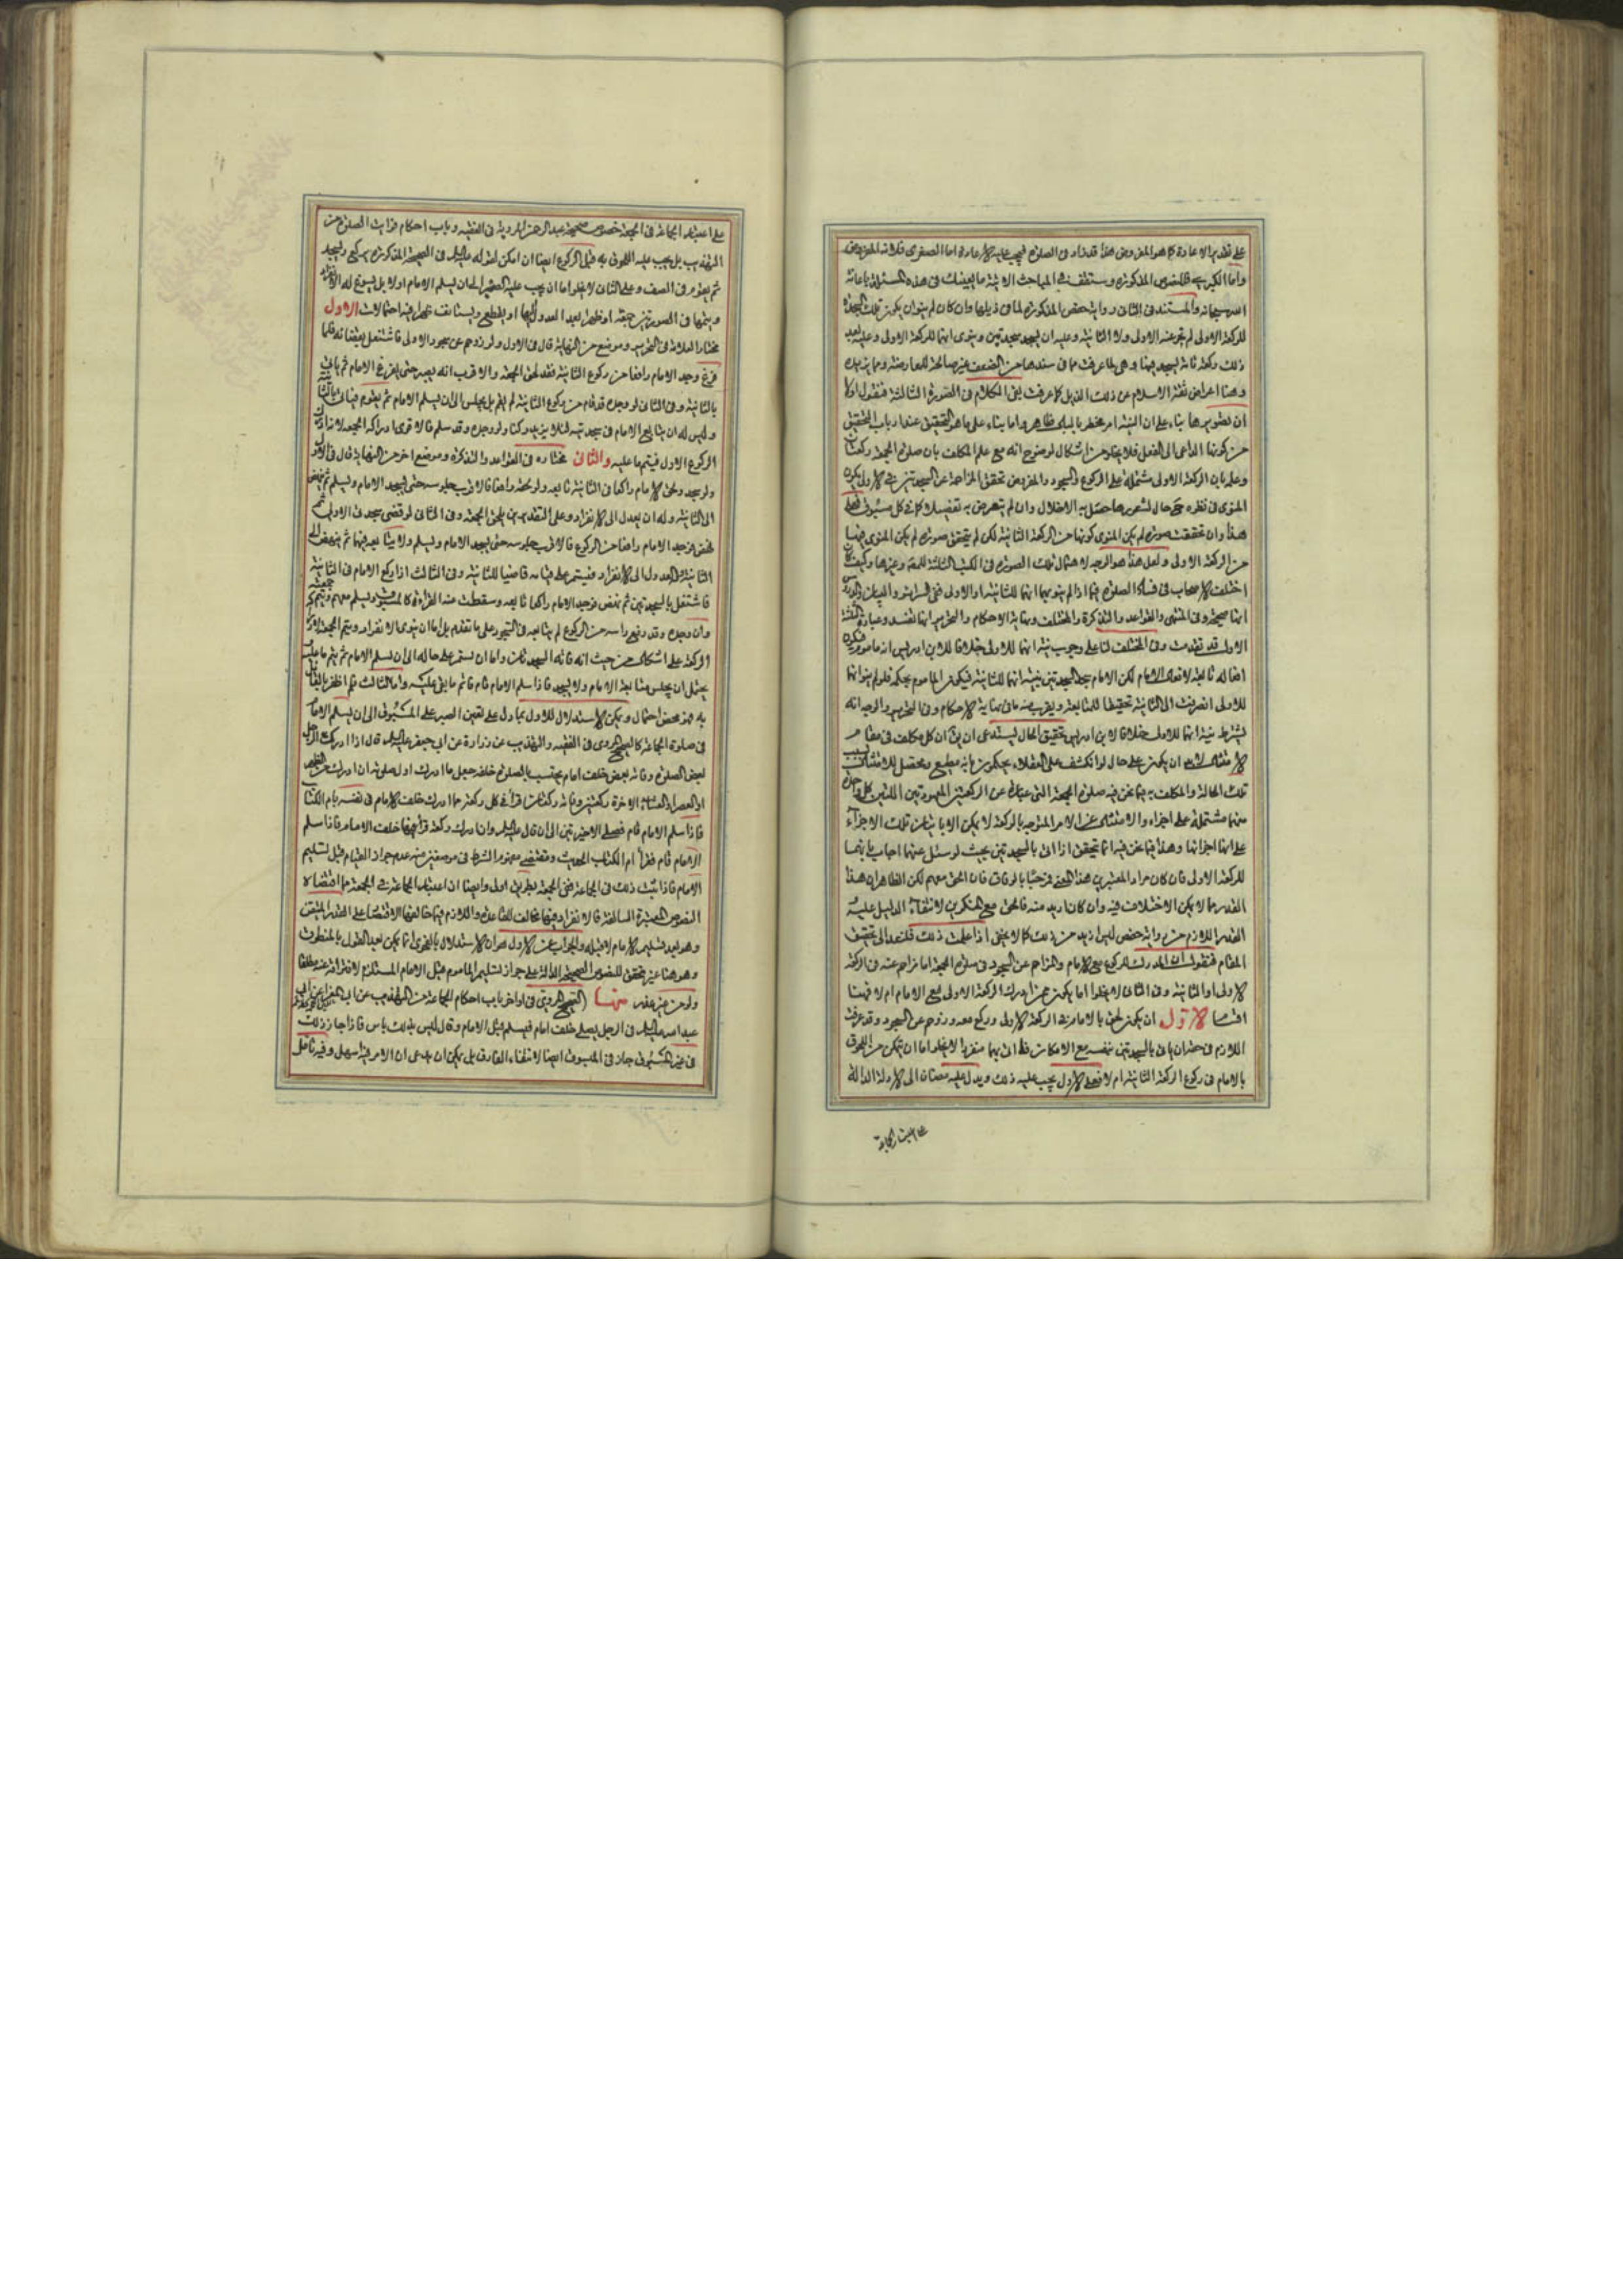 على تقدير الاعادة كما هو المفروض هذا قد زاد في الصلوة فيجب عليه الاعادة اما الصغرى فلانه المفروض
واما الكبرى فللنصوص المذكورة وستقف في المباحث الاتية ما يعينك في هذه المسئلة باعانة
الله سبحانه والمستند في الثاني رواية حفص المذكورة لما في ذيلها وان كان لم ينو ان يكون تلك السجدة
للركعة الاولى لم تجز عنه الاولى ولا الثانية وعليه ان يسجد سجدتين وينوي انهما للركعة الاولى وعليه بعد
ذلك ركعة ثانية يسجد فيها وهي لما عرفت مما في سندها من الضعف غير صالحة للمعارضة ومما يزيده
وهنا اعراض ثقة الاسلام عن ذلك الذيل كما عرفت بقي الكلام في الصورة الثالثة فنقول اولا
ان تصويرها بناء على ان النية امر مخطر بالبال ظاهر واما بناء على ما هو التحقيق عند ارباب التحقيق
من كونها الداعي الى الفعل فلا يخلو من اشكال لوضوح انه مع علم المكلف بان صلوة الجمعة ركعتان
وعلمه بان الركعة الاولى مشتملة على الركوع والسجود والمفروض تحقق المزاحمة عن السجدتين في الاول يكون
المنوي في نظره حال شعورها حصل به الاخلال وان لم يتعرض به تفصيلا كما في كل مسبوق فعلى
هذا وان تحققت صورة لم يكن المنوي كونها من الركعة الثانية لكن لم يتحقق صورة لم يكن المنوي فيها
من الركعة الاولى ولعل هذا هو الوجه لاهمال تلك الصورة في الكتب الثلثة للمقـ وغيرها وكيف كان
اختلف الاصحاب في فساد الصلوة فيما اذا لم ينو بهما انهما للثانية او الاولى ففي السرائر والبيان والدروس
انها صحيحة وفي المنتهى والقواعد والتذكرة والمختلف ونهاية الاحكام والتحرير انها تفسد وعبارة الثلثة
الاول قد تقدمت وفي المختلف لنا على وجوب نية انهما للاولى خلافا لابن ادريس انه ماموم فيكون
افعاله تابعة لافعال الامام لكن الامام سجد السجدتين بنية انهما للثانية فيكون الماموم بحكمه فلو لم ينو انهما
للاولى انصرفت الى الثانية تحقيقا للمتابعة ويقرب منه ما في نهاية الاحكام وفي التحرير والوجه انه
يشترط نية انهما للاولى خلافا لابن ادريس تحقيق الحال يستدعي ان يق ان كل مكلف في مقام
الامتثال لابد ان يكون على حال لو انكشف على العقلاء يحكمون بانه مطيع ومحصل للامتثال بسبب
تلك الحالة والمكلف به فيما نحن فيه صلوة الجمعة التي عبارة عن الركعتين المعهودتين اللتين كل واحدة
منهما مشتملة على اجزاء والامتثال عن الامر المتوجه بالركعة لا يمكن الا باتيان تلك الاجزاء
على انها اجزائها وهذا فيما نحن فيه انما يتحقق اذا اتى بالسجدتين بحيث لو سئل عنهما اجاب بانهما
للركعة الاولى فان كان مراد المعتبرين هذا المعنى فمرحبا بالوفاق فان الحق معهم لكن الظاهر ان هذا
القدر مما لا يمكن الاختلاف فيه وان كان ازيد منه فالحق مع المنكرين لانتفاء الدليل عليه
القدر اللازم من رواية حفص ليس ازيد من ذلك كما لا يخفى اذا علمت ذلك فلنعد الى تحقيق
المقام فنقول ان المدرك للركوع مع الامام والمزاحم عن السجود في صلوة الجمعة اما زاحم عنه في الركعة
الاولى او الثانية وفي الثاني لا يخلو اما يكون ممن ادرك الركعة الاولى مع الامام ام لا فهنا
اقسام الاول ان يكون لحق بالامام في الركعة الاولى وركع معه وزوحم عن السجود وقد عرفت
اللازم في حقه ان ياتي بالسجدتين بنفسه مع الامكان فاذا اتى بهما منفردا لا يخلو اما ان يتمكن من اللحوق
بالامام في ركوع الركعة الثانية ام لا فعلى الاول يجب عليه ذلك ويدل عليه مضافا الى الادلة الدالة
على اعتبار الجماعة
على اعتبار الجماعة في الجمعة خصوص صحيحة عبد الرحمن المروية في الفقيه وباب احكام فوائت الصلوة من
التهذيب بل يجب عليه اللحوق به قبل الركوع ايضا ان امكن لقوله عليه السلام في الصحيحة المذكورة يركع ويسجد
ثم يقوم في الصف وعلى الثاني لا يخلو اما ان يجب عليه الصبر الى ان يسلم الامام اولا بل يسوغ له الانفراد
ويتمها في الصورتين جمعة او ظهرا بعد العدول اليها او يقطع ويستانف ظهرا فيه احتمالات الاول
مختار العلامة في التحرير وموضع من النهاية قال في الاول ولو زوحم عن سجود الاولى فاشتغل بقضائه فلما
فرغ وجد الامام رافعا من ركوع الثانية فقد لحق الجمعة والاقرب انه يصبر حتى يفرغ الامام ثم ياتي
بالثانية وفي الثاني لو وجده قد قام من ركوع الثانية لم يقم بل يجلس الى ان يسلم الامام ثم يقوم فياتي بالثانية
وليس له ان يتابع الامام في سجدتيه لئلا يزيد ركنا ولو وجده وقد سلم فالاقوى ادراكه الجمعة لانه ادرك
الركوع الاول فيتم ما عليه والثاني مختاره في القواعد والتذكرة وموضع اخر من النهاية قال في الاول
ولو سجد ولحق الامام راكعا في الثانية تابعه ولو لحقه رافعا فالاقرب جلوسه حتى يسجد الامام ويسلم ثم ينهض
الى الثانية وله ان يعدل الى الانفراد وعلى التقديرين يلحق الجمعة وفي الثاني لو قضى سجدتي الاولى ثم
نهض فوجد الامام رافعا من الركوع فالاقرب جلوسه حتى يسجد الامام ويسلم ولا يتابعه فيها ثم ينهض الى
الثانية وله العدول الى الانفراد فيستمر على قيامه قاضيا للثانية وفي الثالث اذا ركع الامام في الثانية
فاشتغل بالسجدتين ثم نهض فوجد الامام راكعا تابعه وسقطت عنه القراءة كالمسبوق ويسلم معهم وتتم له جمعته
وان وجده وقد رفع راسه من الركوع لم يتابعه في السجود على ما تقدم بل اما ان ينوي الانفراد ويتم الجمعة لادراك
الركعة على اشكال من حيث انه فاته السجدتان واما ان يستمر على حاله الى ان يسلم الامام ثم يتم ما عليه
يحتمل ان يجلس متابعة الامام ولا يسجد فاذا سلم الامام قام فاتم ما بقي عليه واما الثالث فلم اظفر بالقائل
به فهو محض احتمال ويمكن الاستدلال للاول بما دل على تعين الصبر على المسبوق الى ان يسلم الامام
في صلوة الجماعة كالصحيح المروي في الفقيه والتهذيب عن زرارة عن ابي جعفر عليه السلام قال اذا ادرك الرجل
بعض الصلوة وفاته بعض خلف امام يحتسب بالصلوة خلفه جعل ما ادرك اول صلوته ان ادرك من الظهر
او العصر او العشاء الاخرة ركعتين وفاته ركعتان قرأ في كل ركعة مما ادرك خلف الامام في نفسه بام الكتاب
فاذا سلم الامام قام فصلى الاخيرتين الى ان قال عليه السلام وان ادرك ركعة قرأ فيها خلف الامام فاذا سلم
الامام قام فقرأ ام الكتاب الحديث ومقتضى مفهوم الشرط في موضعين منه عدم جواز القيام قبل تسليم
الامام فاذا ثبت ذلك في الجماعة ففي الجمعة بطريق اولى وايضا ان اعتبار الجماعة في الجمعة مما اقتضاه
النصوص المعتبرة السالفة فالانفراد فيها مخالف للقاعدة واللازم فيما خالفها الاقتصار على القدر المتيقن
وهو بعد تسليم الامام لا قبله والجواب عن الاول هو ان الاستدلال بالفحوى انما يمكن بعد القول بالمنطوق
وهو هنا غير متحقق للنصوص الصحيحة الدالة على جواز تسليم الماموم قبل الامام المستلزم لافتراقه عنه مطلقا
ولو من غير عذر منها الصحيح المروي في اواخر باب احكام الجماعة من التهذيب عن ابي المغرا عن ابي
عبد الله عليه السلام في الرجل يصلي خلف امام فيسلم قبل الامام وقال ليس بذلك باس فاذا جاز ذلك
في غير المسبوق جاز في المسبوق ايضا لانتفاء الفارق بل يمكن ان يدعى ان الامر فيه اسهل وفيه تامل